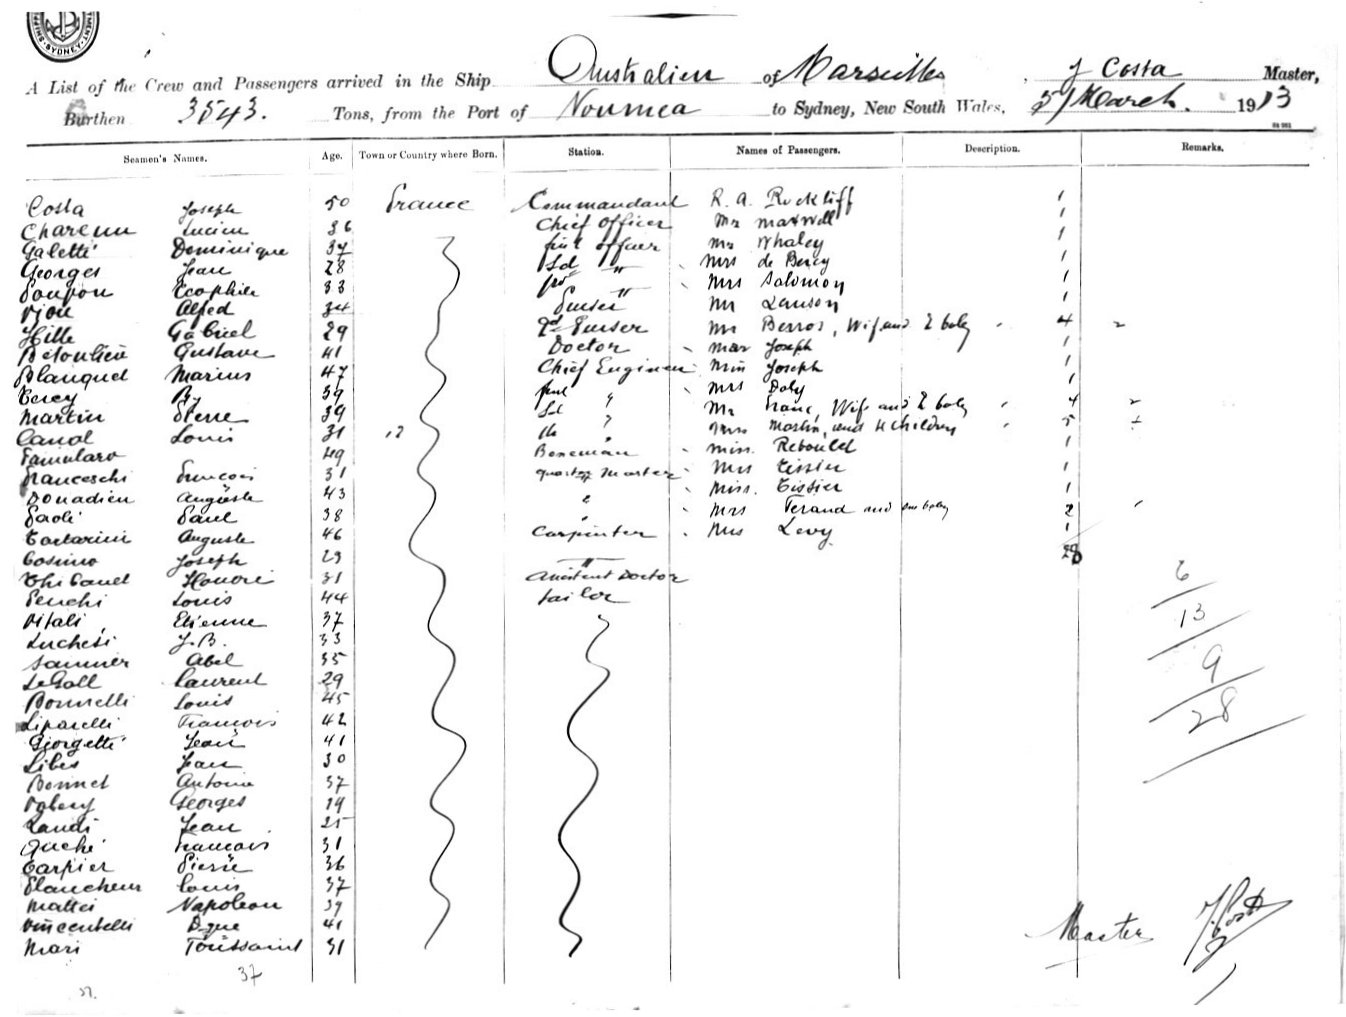 SYDNEY
A List of the Crew and Passengers arrived in the Ship Australien of Marseilles, J Costa Master,
Burthen 3543. Tons, from the Port of Noumea to Sydney, New South Wales, 31 March. 1913
Seamen's Names. Age. Town or Country where Born. Station. Names of Passengers. Description. Remarks.
Costa Joseph 50 France Commandant R. A. Rockliff 1
Lucien 36 Chief Officer Mr Maxwell 1
Galetti Dominique 37 first officer Mr Whaley 1
Georges Jean 28 Sd " Mrs de Bercy 1
33 " Mrs Salomon 1
Alfred 34 Purser Mr Lawson 1
Hille Gabriel 29 2d Purser Mr Berros, Wife and 2 baby 4
Gustave 41 Doctor Mar Joseph 1
Blanquet Marius 47 Chief Engineer Miss Joseph 1
39 Mrs Daly 1
Martin Pierre 39 Sd " Mr Franc, Wife and 2 baby 4
Canal Louis 31 Mrs Martin, and 4 children 5
Famularo 49 Boseman Miss. Reboulet 1
Franceschi Francois 31 quarter Master Mrs Tissier 1
Donadieu Auguste 43 " Miss. Tissier 1
Paoli Paul 38 " Mrs Ferand and one baby 2
Tartarini Auguste 46 Carpinter Mrs Levy 1
Cosimo Joseph 29 " 28
Thibaud Honoré 31 Assistent Doctor 6
Louis 44 tailor
Vitali Etienne 37 13
Luchesi J. B. 33
Saunier Abel 35 9
LeGall Laurent 29
Bonnelli Louis 45 28
Liparelli Francois 42
Giorgetti Jean 41
Libes Jean 30
Bonnet Antoine 37
Georges 19
Landi Jean 25
Francois 31
Carpier Pierre 36
Plancheur Louis 37
Mattei Napoleon 39
Vincentelli Dque 41 Master J Costa
Mari Toussaint 31
37